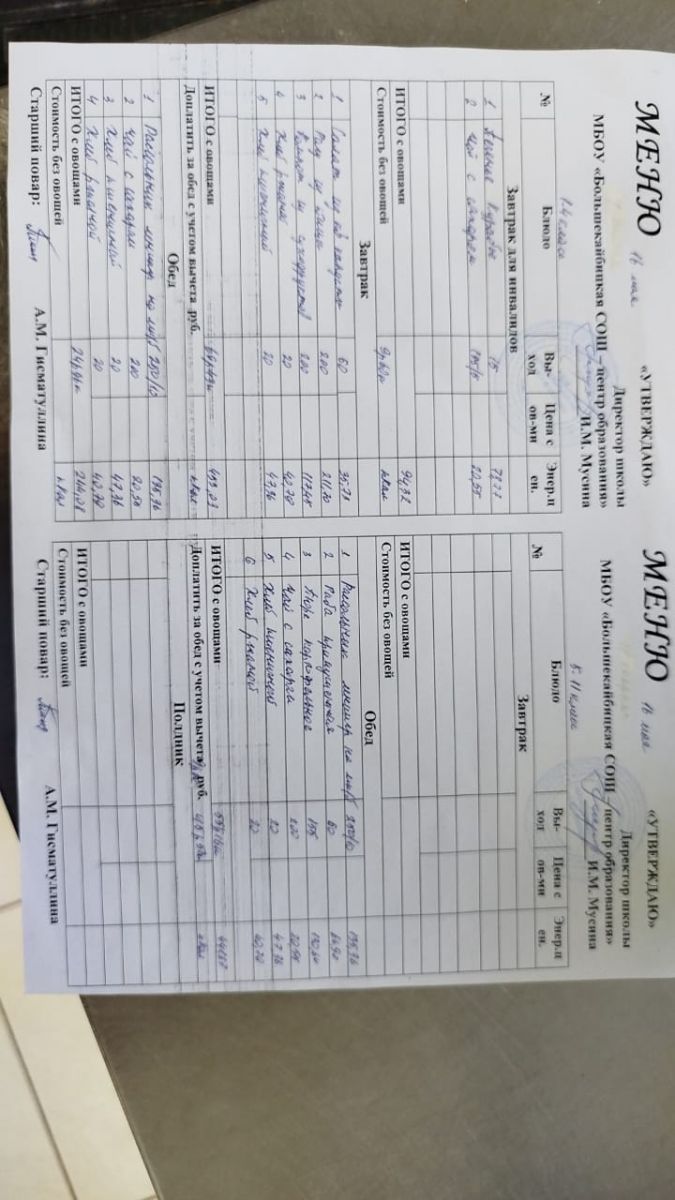 МЕНЮ 16 мая
«УТВЕРЖДАЮ»
Директор школы
МБОУ «Большекайбицкая СОШ – центр образования» И.М. Мусина
1-4 класс
№ Блюдо Вы-ход Цена с ов-ми Энер.ц ен.
Завтрак для инвалидов
1 75
2 Чай с сахаром
ИТОГО с овощами 94,82
Стоимость без овощей ккал
Завтрак
1 Салат из 60 35,71
2 Рагу из птицы 200 211,70
3 Компот из сухофруктов 200 117,45
4 Хлеб ржаной 20 40,70
5 Хлеб пшеничный 20 47,36
ИТОГО с овощами
Доплатить за обед с учетом вычета руб. ккал
Обед
1 Рассольник ленингр на м/б 250/10 135,96
2 Чай с сахаром 200
3 Хлеб пшеничный 20 47,36
4 Хлеб ржаной 20 40,70
ИТОГО с овощами
Стоимость без овощей ккал
Старший повар: А.М. Гисматуллина
МЕНЮ 16 мая
«УТВЕРЖДАЮ»
Директор школы
МБОУ «Большекайбицкая СОШ – центр образования» И.М. Мусина
5-11 класс
№ Блюдо Вы-ход Цена с ов-ми Энер.ц ен.
Завтрак
ИТОГО с овощами
Стоимость без овощей
Обед
1 Рассольник ленингр на м/б 250/10 135,96
2 Рыба припущенная 80
3 Пюре картофельное
4 Чай с сахаром 200
5 Хлеб пшеничный 20 47,36
6 Хлеб ржаной 20 40,70
ИТОГО с овощами
Доплатить за обед с учетом вычета руб. ккал
Полдник
ИТОГО с овощами
Стоимость без овощей
Старший повар: А.М. Гисматуллина